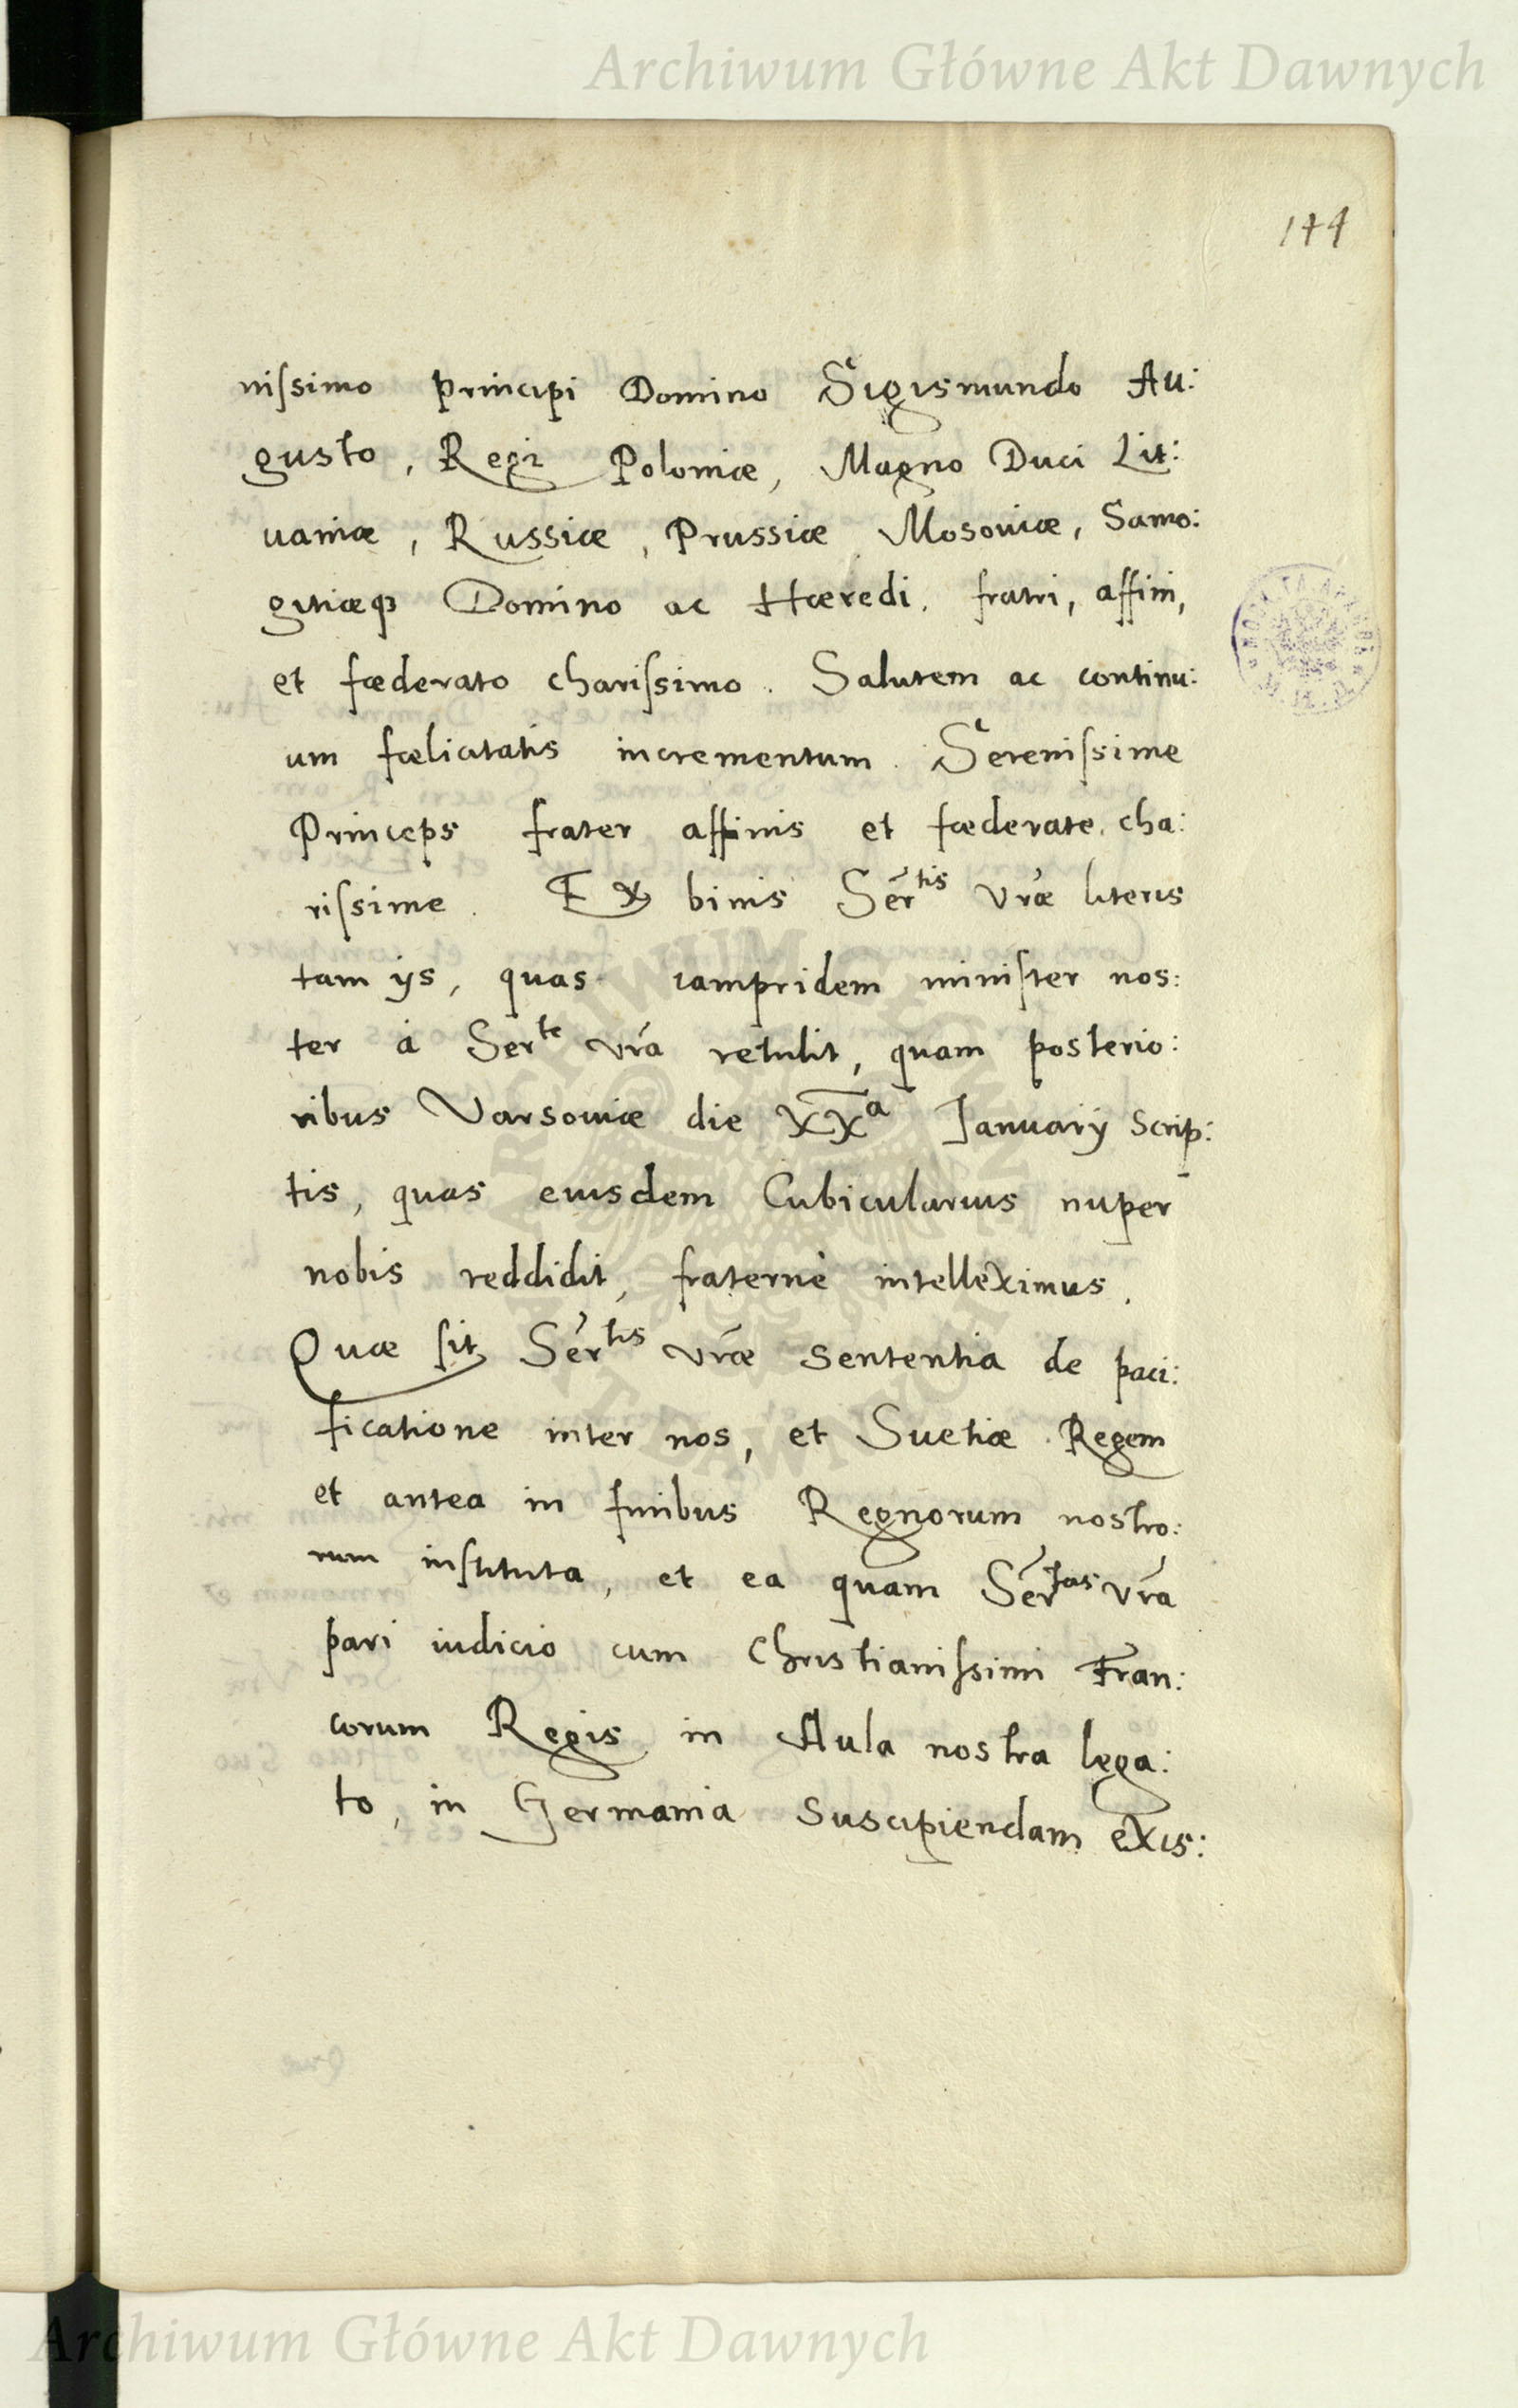 Archiwum Główne Akt Dawnych
174
niſsimo principi Domino Sigismundo Au:
gusto, Regi Poloniæ, Magno Duci Lit:
uaniæ, Russiæ, Prussiæ Mosouiæ, Samo:
gitiæqȝ Domino ac Hæredi. fratri, affini,
et fœderato chariſsimo. Salutem ac continu:
um fœlicitatis incrementum. Sereniſsime
Princeps frater affinis et fœderate cha:
riſsime. Ex binis Ser̄ᵗⁱˢ vr̄æ literis
tam ijs, quas iampridem miniſter nos:
ter à Serᵗᵉ vr̄a retulit, quam posterio:
ribus Varsouiæ die XXᵃ Ianuarij Scrip:
tis, quas eiusdem Cubicularius nuper
nobis reddidit, fraternè intelleximus.
Quæ ſit Ser̄ᵗⁱˢ vr̄æ sententia de paci:
ficatione inter nos, et Suetiæ Regem
et antea in finibus Regnorum nostro:
rum inſtituta, et ea quam Ser̄ᵗᵃˢ vr̄a
pari iudicio cum Christianiſsimi Fran:
corum Regis in Aula nostra lega:
to, in Germania suscipiendam exis:
Archiwum Główne Akt Dawnych